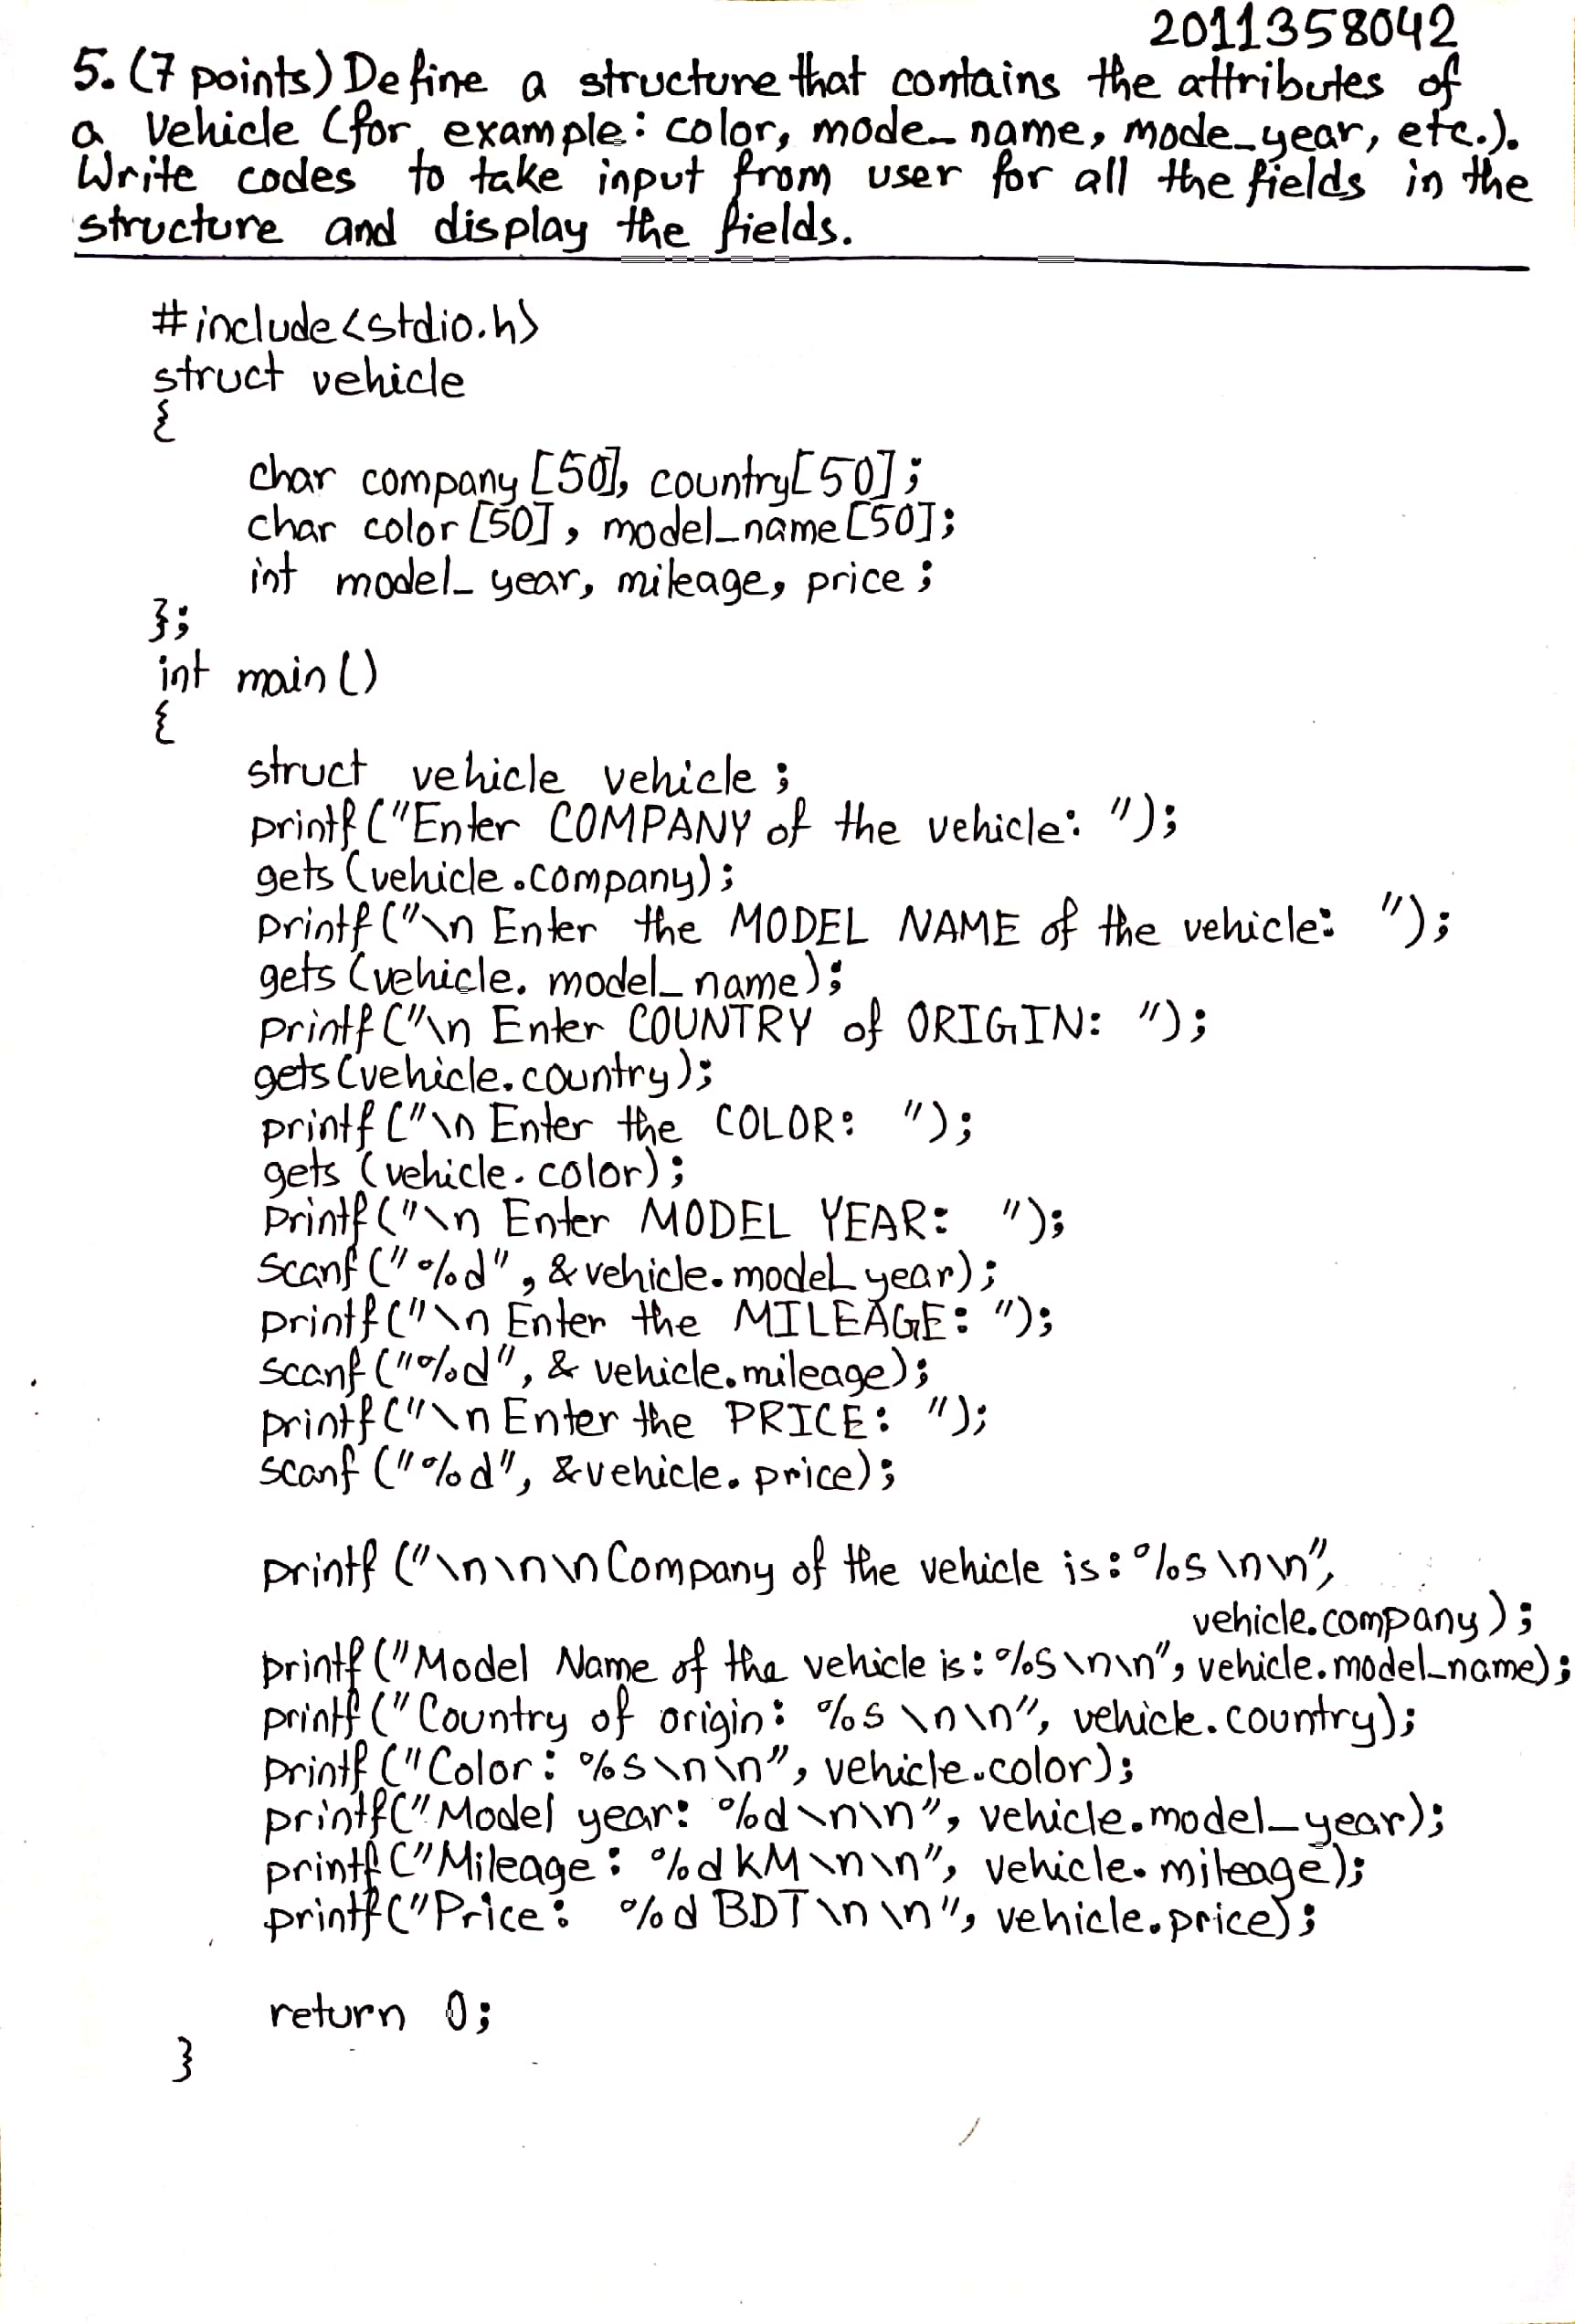 2011358042
5. (7 points) Define a structure that contains the attributes of
a vehicle (for example: color, mode_name, mode_year, etc.).
Write codes to take input from user for all the fields in the
structure and display the fields.
#include<stdio.h>
struct vehicle
{
char company[50], country[50];
char color[50], model_name[50];
int model_year, mileage, price;
};
int main()
{
struct vehicle vehicle;
printf("Enter COMPANY of the vehicle: ");
gets(vehicle.company);
printf("\n Enter the MODEL NAME of the vehicle: ");
gets(vehicle.model_name);
printf("\n Enter COUNTRY of ORIGIN: ");
gets(vehicle.country);
printf("\n Enter the COLOR: ");
gets(vehicle.color);
printf("\n Enter MODEL YEAR: ");
scanf("%d", &vehicle.model_year);
printf("\n Enter the MILEAGE: ");
scanf("%d", &vehicle.mileage);
printf("\n Enter the PRICE: ");
scanf("%d", &vehicle.price);
printf("\n\n\n Company of the vehicle is: %s\n\n",
vehicle.company);
printf("Model Name of the vehicle is: %s\n\n", vehicle.model_name);
printf("Country of origin: %s\n\n", vehicle.country);
printf("Color: %s\n\n", vehicle.color);
printf("Model year: %d\n\n", vehicle.model_year);
printf("Mileage: %d KM\n\n", vehicle.mileage);
printf("Price: %d BDT\n\n", vehicle.price);
return 0;
}